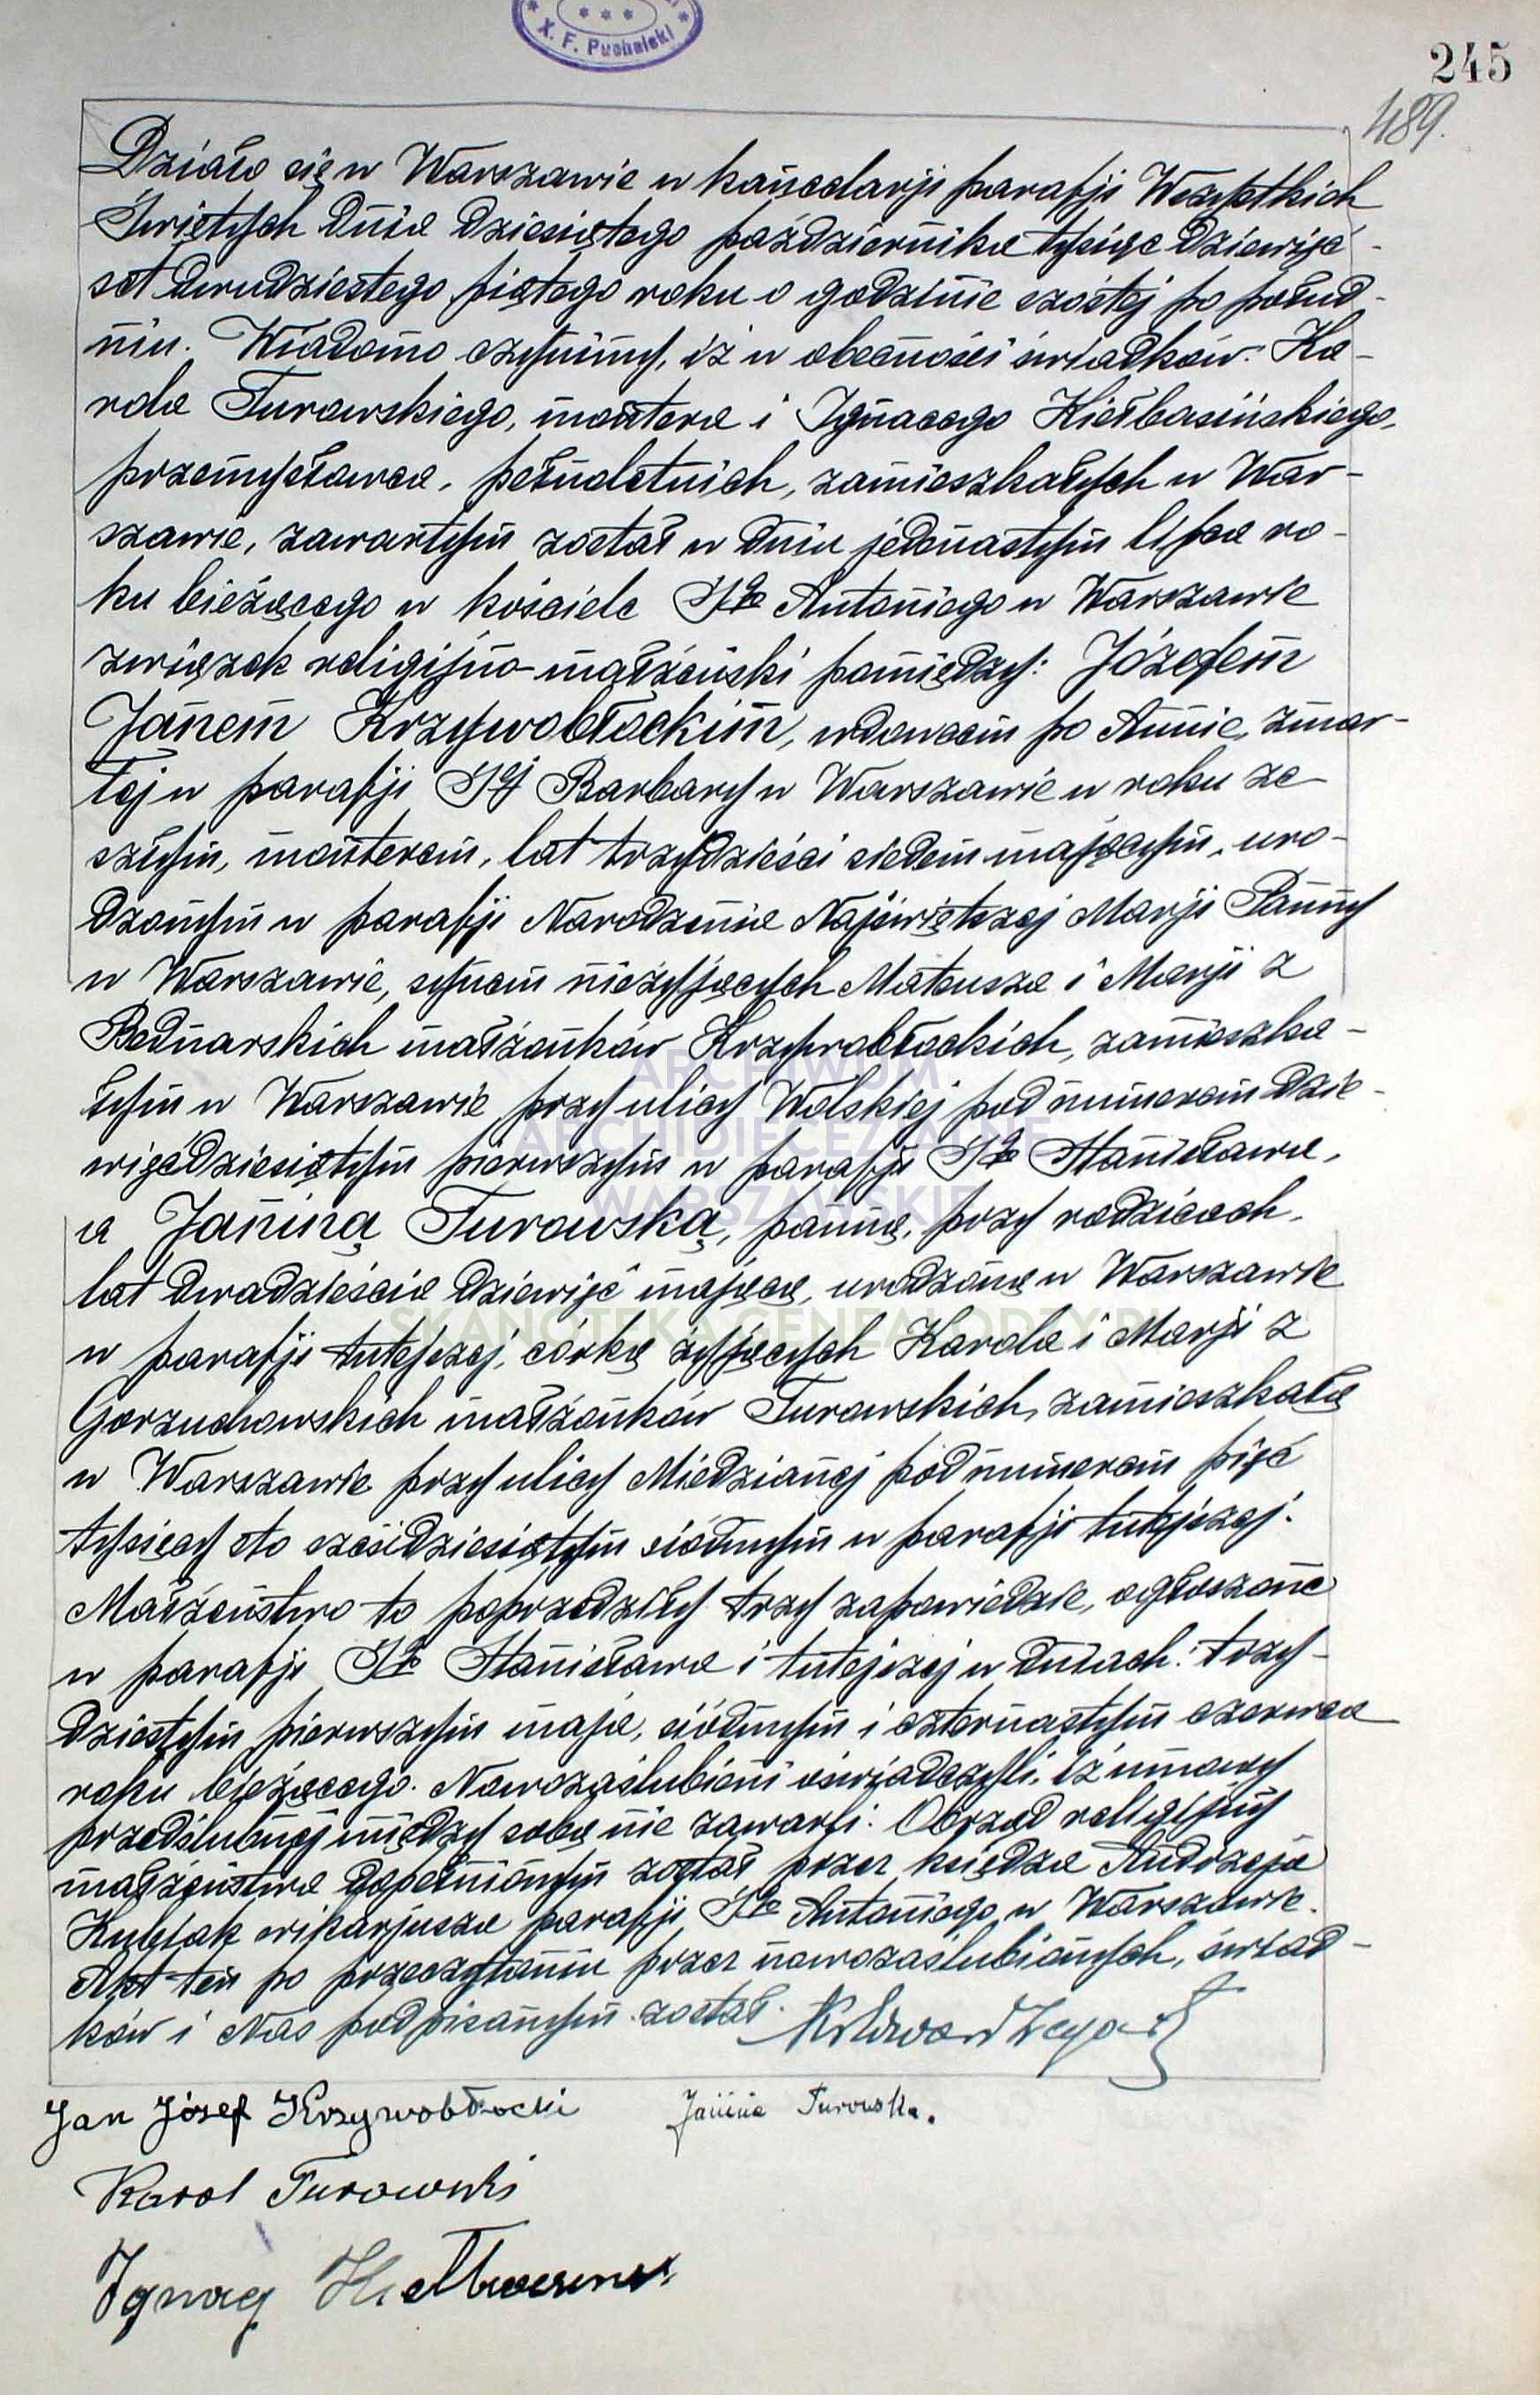 X. F. Puchalski
245
489.
Działo się w Warszawie w kancelarji parafji Wszystkich
Świętych dnia dziesiątego października tysiąc dziewięć-
set dwudziestego piątego roku o godzinie szóstej po połud-
niu. Wiadomo czynimy, iż w obecności świadków: Ka-
rola Turowskiego, montera i Ignacego Kiełbasińskiego,
przemysławca, pełnoletnich, zamieszkałych w War-
szawie, zawartym został w dniu jedenastym lipca ro-
ku bieżącego w kościele Śgo Antoniego w Warszawie
związek religijno-małżeński pomiędzy: Józefem
Janem Krzywobłockim, wdowcem po Annie, zmar-
łej w parafji Śej Barbary w Warszawie w roku ze-
szłym, monterem, lat trzydzieści siedem mającym, uro-
dzonym w parafji Narodzenia Najświętszej Marji Panny
w Warszawie, synem nieżyjących Mateusza i Marji z
Bednarskich małżonków Krzywobłockich, zamieszka-
łym w Warszawie przy ulicy Wolskiej pod numerem dzie-
więćdziesiątym pierwszym w parafji Śgo Stanisława,
a Janiną Turowską, panną, przy rodzicach,
lat dwadzieścia dziewięć mającą, urodzoną w Warszawie
w parafji tutejszej, córką żyjących Karola i Marji z
Gorzuchowskich małżonków Turowskich, zamieszkałą
w Warszawie przy ulicy Miedzianej pod numerem pięć
tysięcy sto sześćdziesiątym siódmym w parafji tutejszej.
Małżeństwo to poprzedziły trzy zapowiedzie, ogłoszone
w parafji Śgo Stanisława i tutejszej w dniach: trzy-
dziestym pierwszym maja, siódmym i czternastym czerwca
roku bieżącego. Nowozaślubieni oświadczyli, iż umowy
przedślubnej między sobą nie zawarli. Obrzęd religijny
małżeństwa dopełnionym został przez księdza Andrzeja
Kubiak wikarjusza parafji Śgo Antoniego w Warszawie.
Akt ten po przeczytaniu przez nowozaślubionych, świad-
ków i Nas podpisanym został.
Jan Józef Krzywobłocki Janina Turowska.
Karol Turowski
Ignacy
ARCHIWUM
ARCHIDIECEZJALNE
WARSZAWSKIE
SKANOTEKA.GENEALODZY.PL